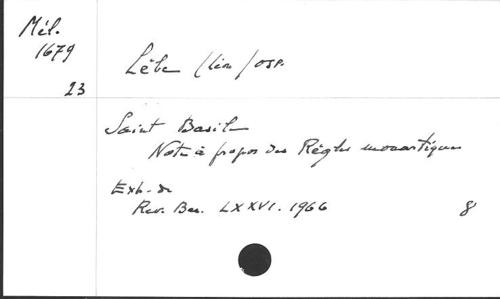 Mél.
1679
23
Lèbe (Léon) OSB.
Saint Basile
Note à propos des Règles monastiques
Extr. de
Rev. Ben. LXXVI. 1966
8